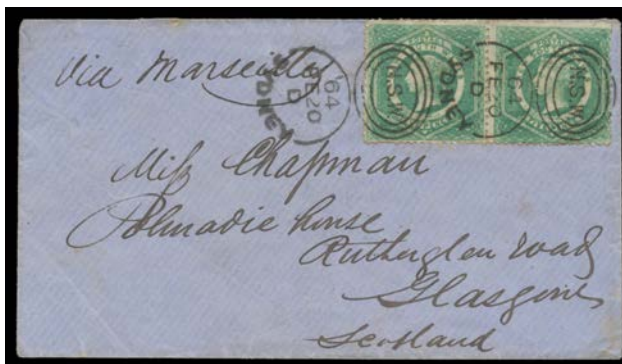 Via Marseilles
SYDNEY
D
FE 20
'64
N.S.W.
SYDNEY
D
FE 20
64
N.S.W.
Miſs Chapman
Polmadie house
Rutherglen road
Glasgow
Scotland